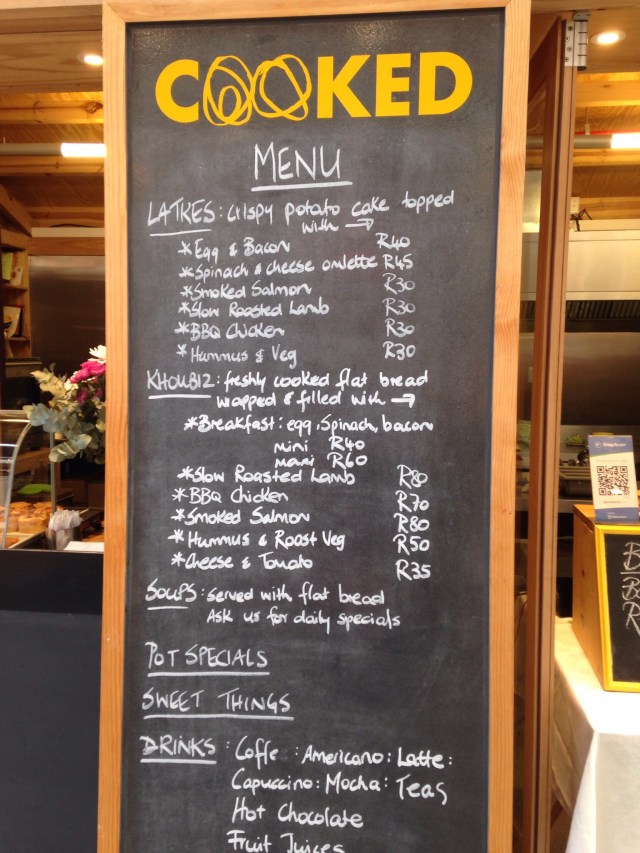 COOKED
MENU
LATKES: crispy potato cake topped
with →
* Egg & Bacon R40
* Spinach & cheese omlette R45
* Smoked Salmon R30
* Slow Roasted Lamb R30
* BBQ Chicken R30
* Hummus & Veg R30
KHOUBIZ: freshly cooked flat bread
wrapped & filled with →
* Breakfast: egg, Spinach, bacon
mini R40
maxi R60
* Slow Roasted Lamb R80
* BBQ Chicken R70
* Smoked Salmon R80
* Hummus & Roast Veg R50
* Cheese & Tomato R35
SOUPS: served with flat bread
Ask us for daily specials
POT SPECIALS
SWEET THINGS
DRINKS: Coffe: Americano: Latte:
Capuccino: Mocha: Teas
Hot Chocolate
Fruit Juices